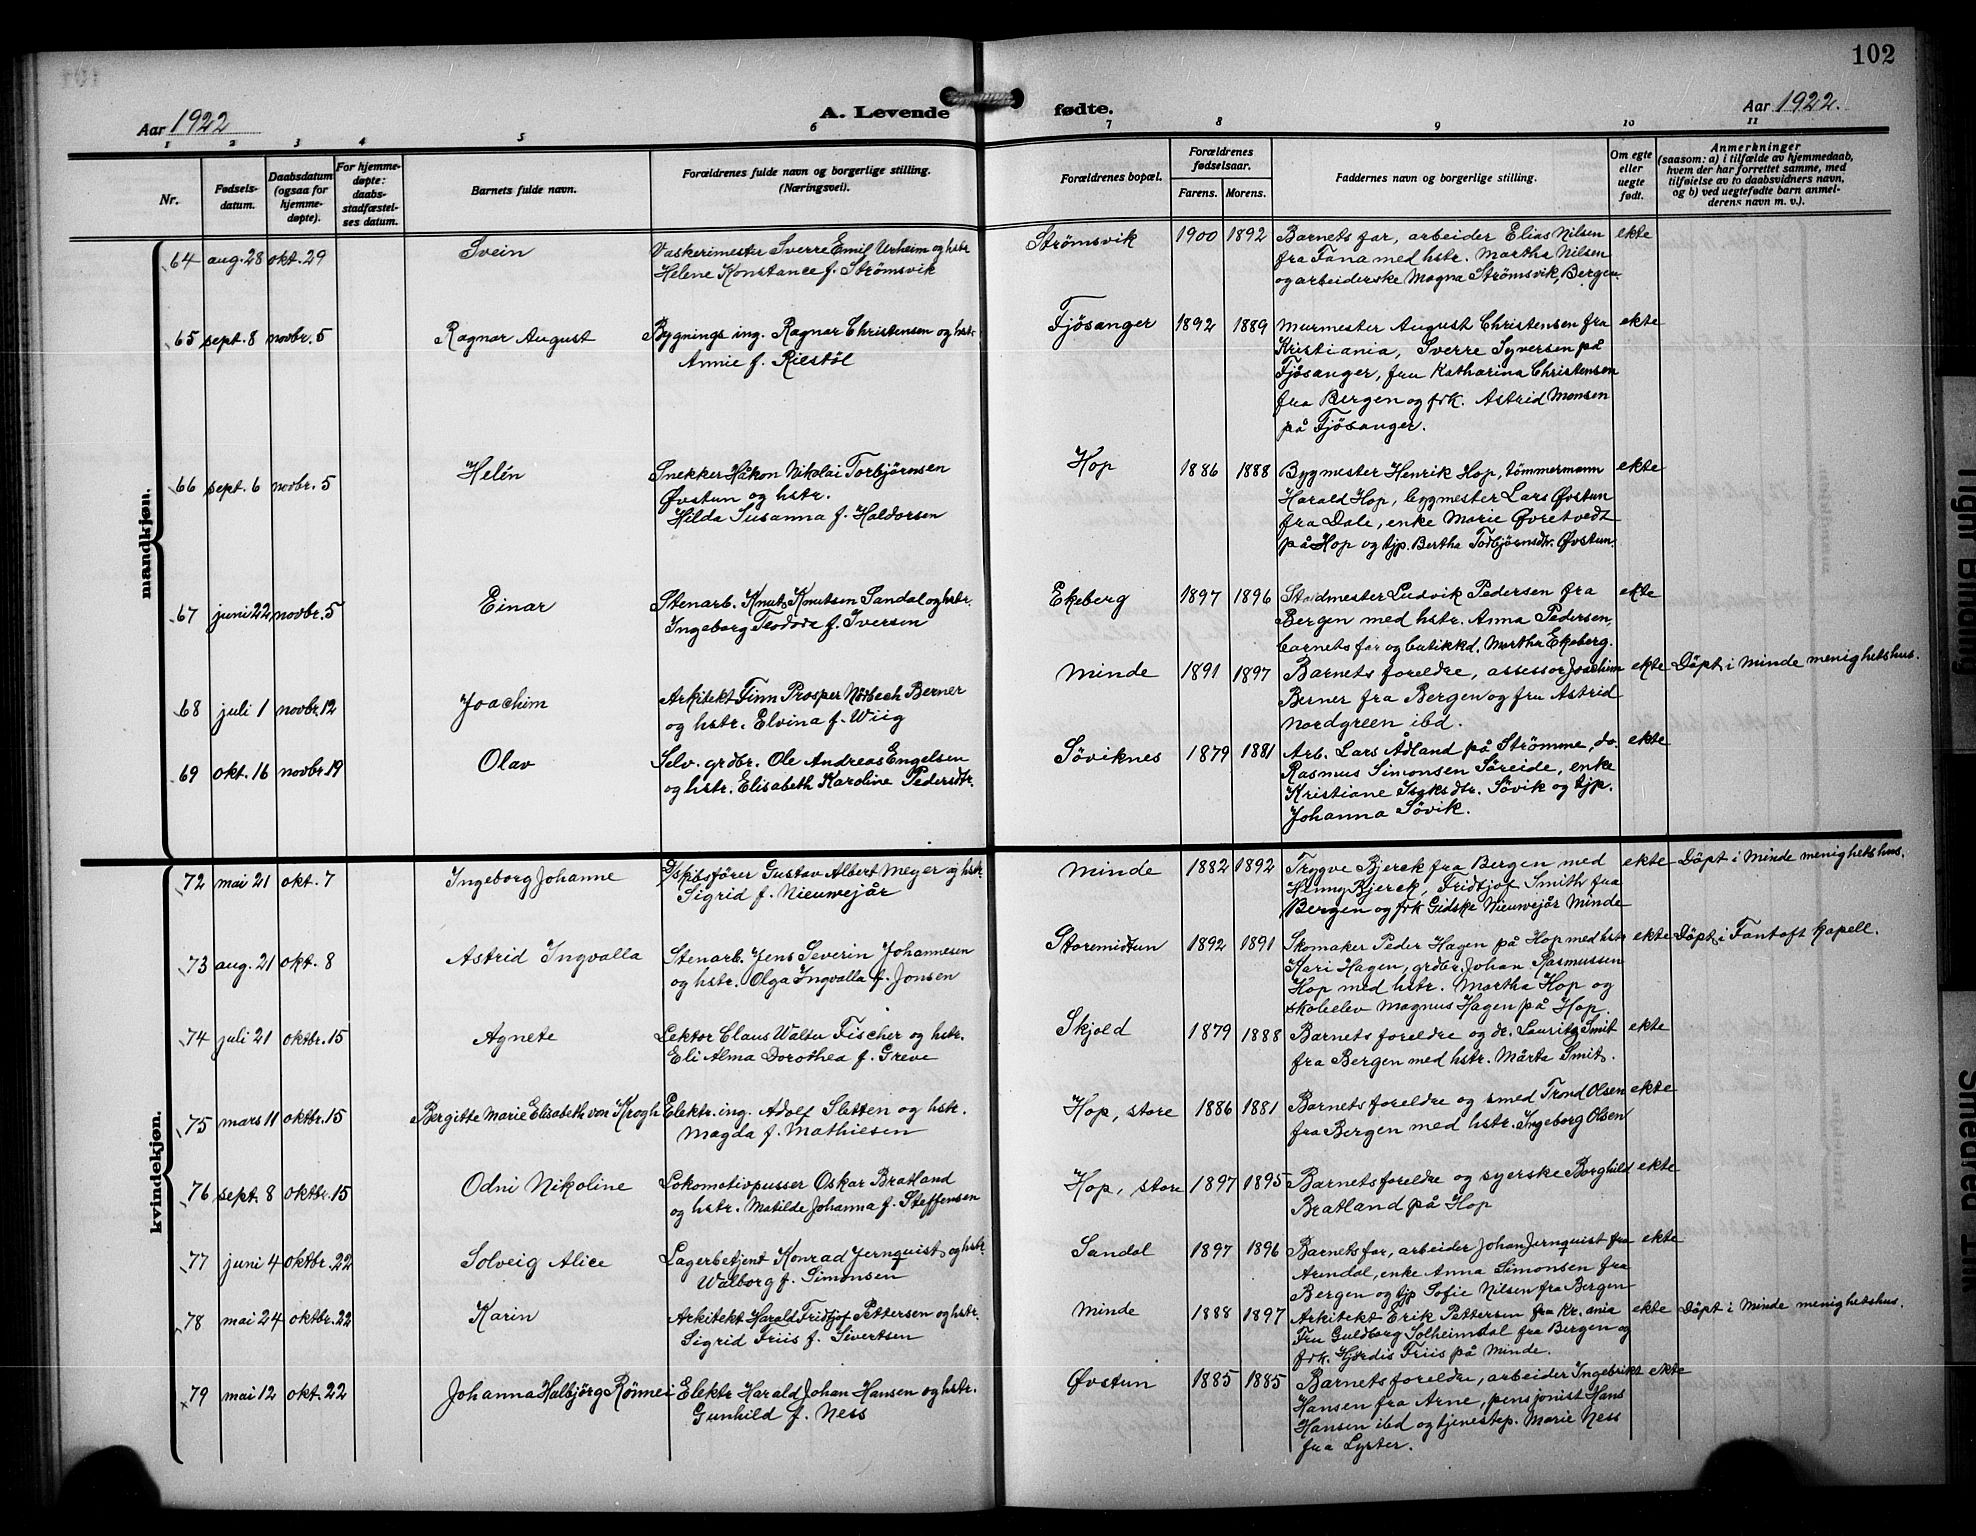 102
Aar 1922
A. Levende fødte.
Aar 1922.
1 2 3 4 5 6 7 8 9 10 11
Nr.
Fødsels-
datum.
Daabsdatum
(ogsaa for
hjemme-
døpte).
For hjemme-
døpte:
daabs
stadfæstel-
ses datum.
Barnets fulde navn.
Forældrenes fulde navn og borgerlige stilling.
(Næringsvei).
Forældrenes bopæl.
Forældrenes
fødselsaar.
Farens. Morens.
Faddernes navn og borgerlige stilling.
Om egte
eller
uegte
født.
Anmerkninger
(saasom: a) i tilfælde av hjemmedaab,
hvem der har forrettet samme, med
tilføielse av to daabsvidners navn,
og b) ved uegtefødte barn anmel-
derens navn m. v.).
mandkjøn.
64 aug. 28 okt. 29 Svein
Vaskerimester Sverre Emil Urheim og hstr
Helene Konstance f. Strømsvik
Strømsvik 1900 1892
Barnets far, arbeider Elias Nilsen
fra Fana med hstr. Martha Nilsen
og arbeiderske Magna Strømsvik, Bergen.
ekte
65 sept. 8 novbr. 5 Ragnar August
Bygnings ing. Ragnar Christensen og hstr.
Annie f. Rilstöl
Fjösanger 1892 1889
Murmester August Christensen fra
Kristiania, Sverre Syversen på
Fjösanger, fru Katharina Christensen
fra Bergen og frk. Astrid Monsen
på Fjösanger.
ekte
66 sept. 6 novbr. 5 Helén
Snekker Håkon Nikolai Torbjörnsen
Øvstun og hstr.
Hilda Susanna f. Haldorsen
Hop 1886 1888
Bygmester Henrik Hop, tömmermann
Harald Hop, bygmester Lars Øvstun
fra Dale, enke Marie Øvretvedt
på Hop og tjp. Bertha Torbjörnsdtr. Øvstun.
ekte
67 juni 22 novbr. 5 Einar
Stenarb. Knut Knutsen Sandal og hstr.
Ingeborg Teodora f. Iversen
Ekeberg 1897 1896
Stadmester Ludvik Pedersen fra
Bergen med hstr. Anna Pedersen,
barnets far og butikkd. Martha Ekeberg.
ekte
68 juli 1 novbr. 12 Joachim
Arkitekt Finn Prosper Nörbech Berner
og hstr. Elvina f. Wiig
Minde 1891 1897
Barnets foreldre, assessor Joachim
Berner fra Bergen og fru Astrid
Nordgreen ibd.
ekte
Döpt i Minde menighetshus.
69 okt. 16 novbr. 19 Olav
Selv. grdbr. Ole Andreas Engelsen
og hstr. Elisabeth Karoline Pedersdtr.
Söviknes 1879 1881
Arb. Lars Ådland på Strömme, do.
Rasmus Simonsen Söreide, enke
Kristiane Isaksdtr. Sövik og tjp.
Johanna Sövik.
ekte
kvindekjøn.
72 mai 21 okt. 7 Ingeborg Johanne
D/skibsfører Gustav Albert Meyer og hstr.
Sigrid f. Nieuwejår
Minde 1882 1892
Trygve Bjerck fra Bergen med
Henny Bjerck, Fridtjof Smith fra
Bergen og frk Gidske Nieuwejår Minde
ekte
Döpt i Minde menighetshus.
73 aug. 21 okt. 8 Astrid Ingvalla
Stenarb. Jens Severin Johannesen
og hstr. Olga Ingvalla f. Jonsen
Storemidtun 1892 1891
Skomaker Peder Hagen på Hop med hstr
Kari Hagen, grdbr. Johan Rasmussen
Hop med hstr. Martha Hop og
skoleelev Magnus Hagen på Hop.
ekte
Döpt i Fantoft kapell.
74 juli 21 oktbr. 15 Agnete
Lektor Claus Walter Fischer og hstr.
Eli Alma Dorothea f. Greve
Skjold 1879 1888
Barnets foreldre og dr. Lauritz Smit
fra Bergen med hstr. Märta Smit.
ekte
75 mars 11 oktbr. 15 Bergitte Marie Elisabeth von Krogh
Elektr. ing. Adolf Sletten og hstr.
Magda f. Mathiesen
Hop, store 1886 1881
Barnets foreldre og smed Trond Olsen
fra Bergen med hstr. Ingeborg Olsen
ekte
76 sept. 8 oktbr. 15 Odni Nikoline
Lokomotivpusser Oskar Bratland
og hstr. Matilde Johanna f. Steffensen
Hop, store 1897 1895
Barnets foreldre og syerske Borghild
Bratland på Hop
ekte
77 juni 4 oktbr. 22 Solveig Alice
Lagerbetjent Konrad Jernquist og hstr.
Walborg f. Simonsen
Sandal 1897 1896
Barnets far, arbeider Johan Jernquist fra
Arendal, enke Anna Simonsen fra
Bergen og tjp Sofie Nilsen fra Bergen
ekte
78 mai 24 oktbr. 22 Karin
Arkitekt Harald Fridtjof Pettersen og hstr.
Sigrid Friis f. Sivertsen
Minde 1888 1897
Arkitekt Erik Pettersen fra Kr.ania
Fru Guldborg Solheimdal fra Bergen og
frk. Hjördis Friis på Minde.
ekte
Döpt i Minde menighetshus.
79 mai 12 okt. 22 Johanna Halbjörg Rönnei
Elektr Harald Johan Hansen og hstr.
Gunhild f. Ness
Øvstun 1885 1885
Barnets foreldre, arbeider Ingebrikt
Hansen fra Arne, pensjonist Hans
Hansen ibd og tjenestep. Marie Ness
fra Lyster.
ekte
Tight Binding
Smeared Ink